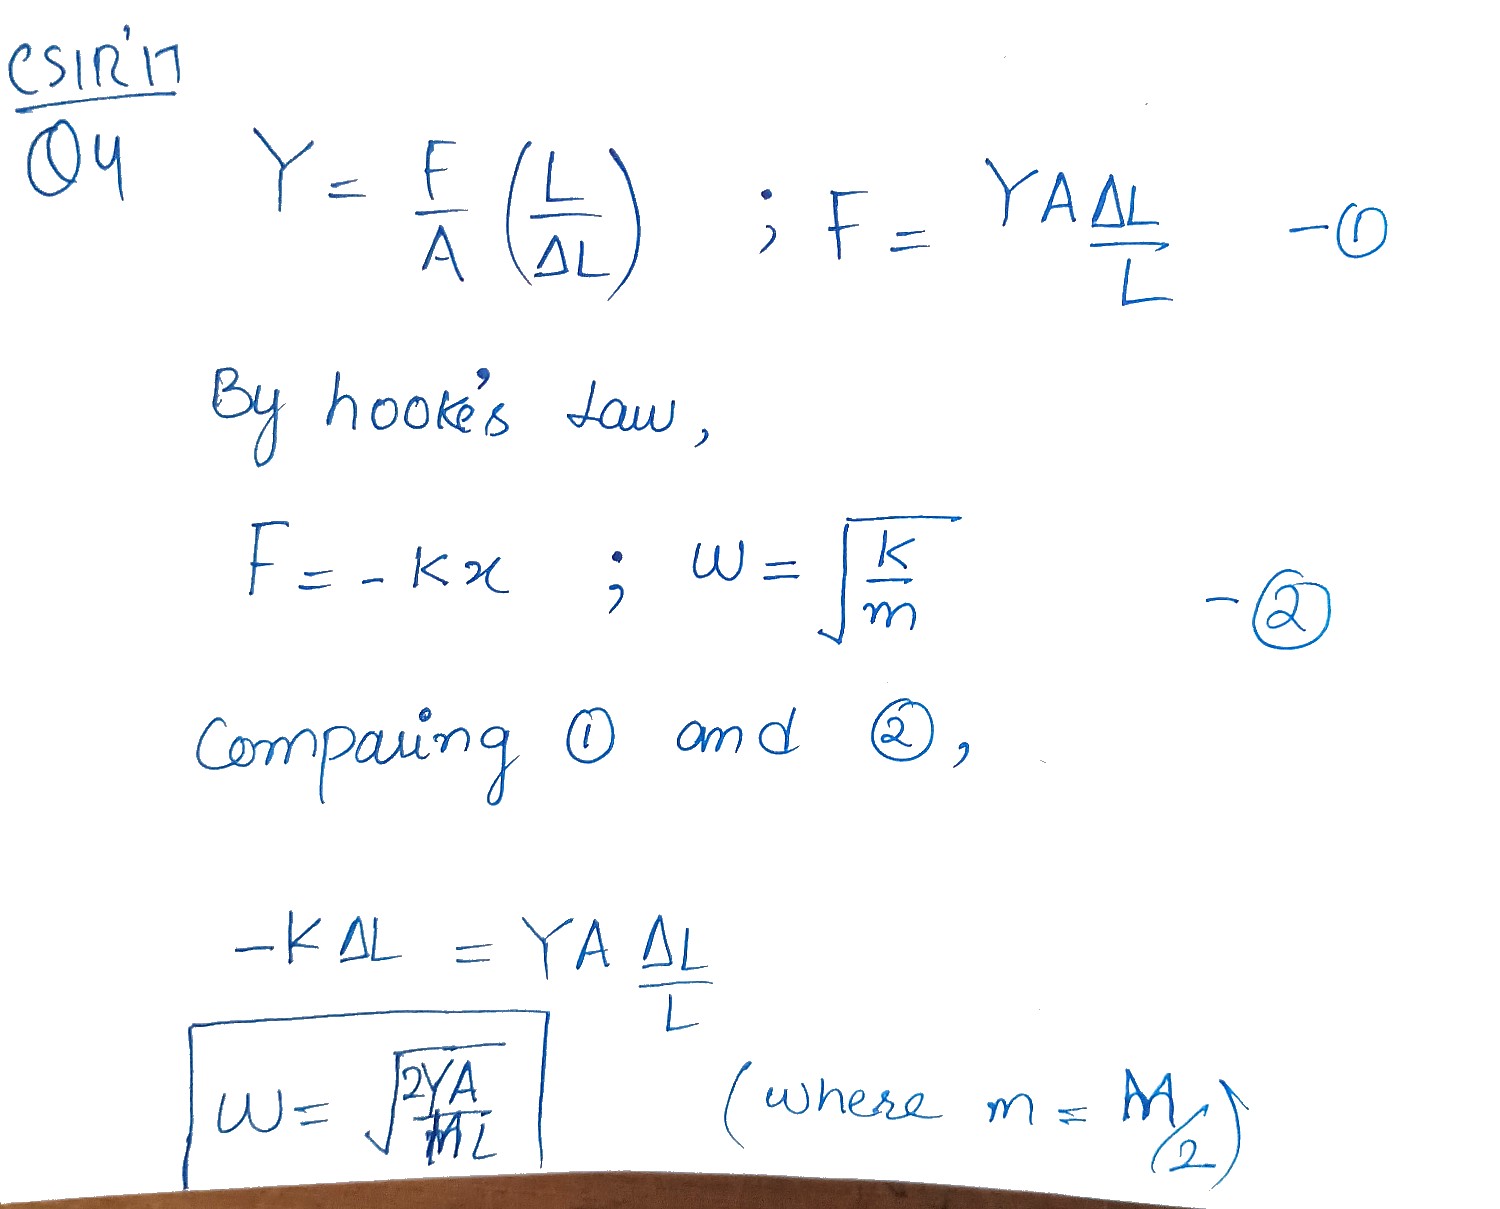 CSIR'17
Q4 Y = F/A (L/ΔL) ; F = YA ΔL/L -①
By hooke's Law,
F = -Kx ; W = √(K/m) -②
Comparing ① and ②,
-K ΔL = YA ΔL/L
W = √(2YA/ML) (where m = M/2)